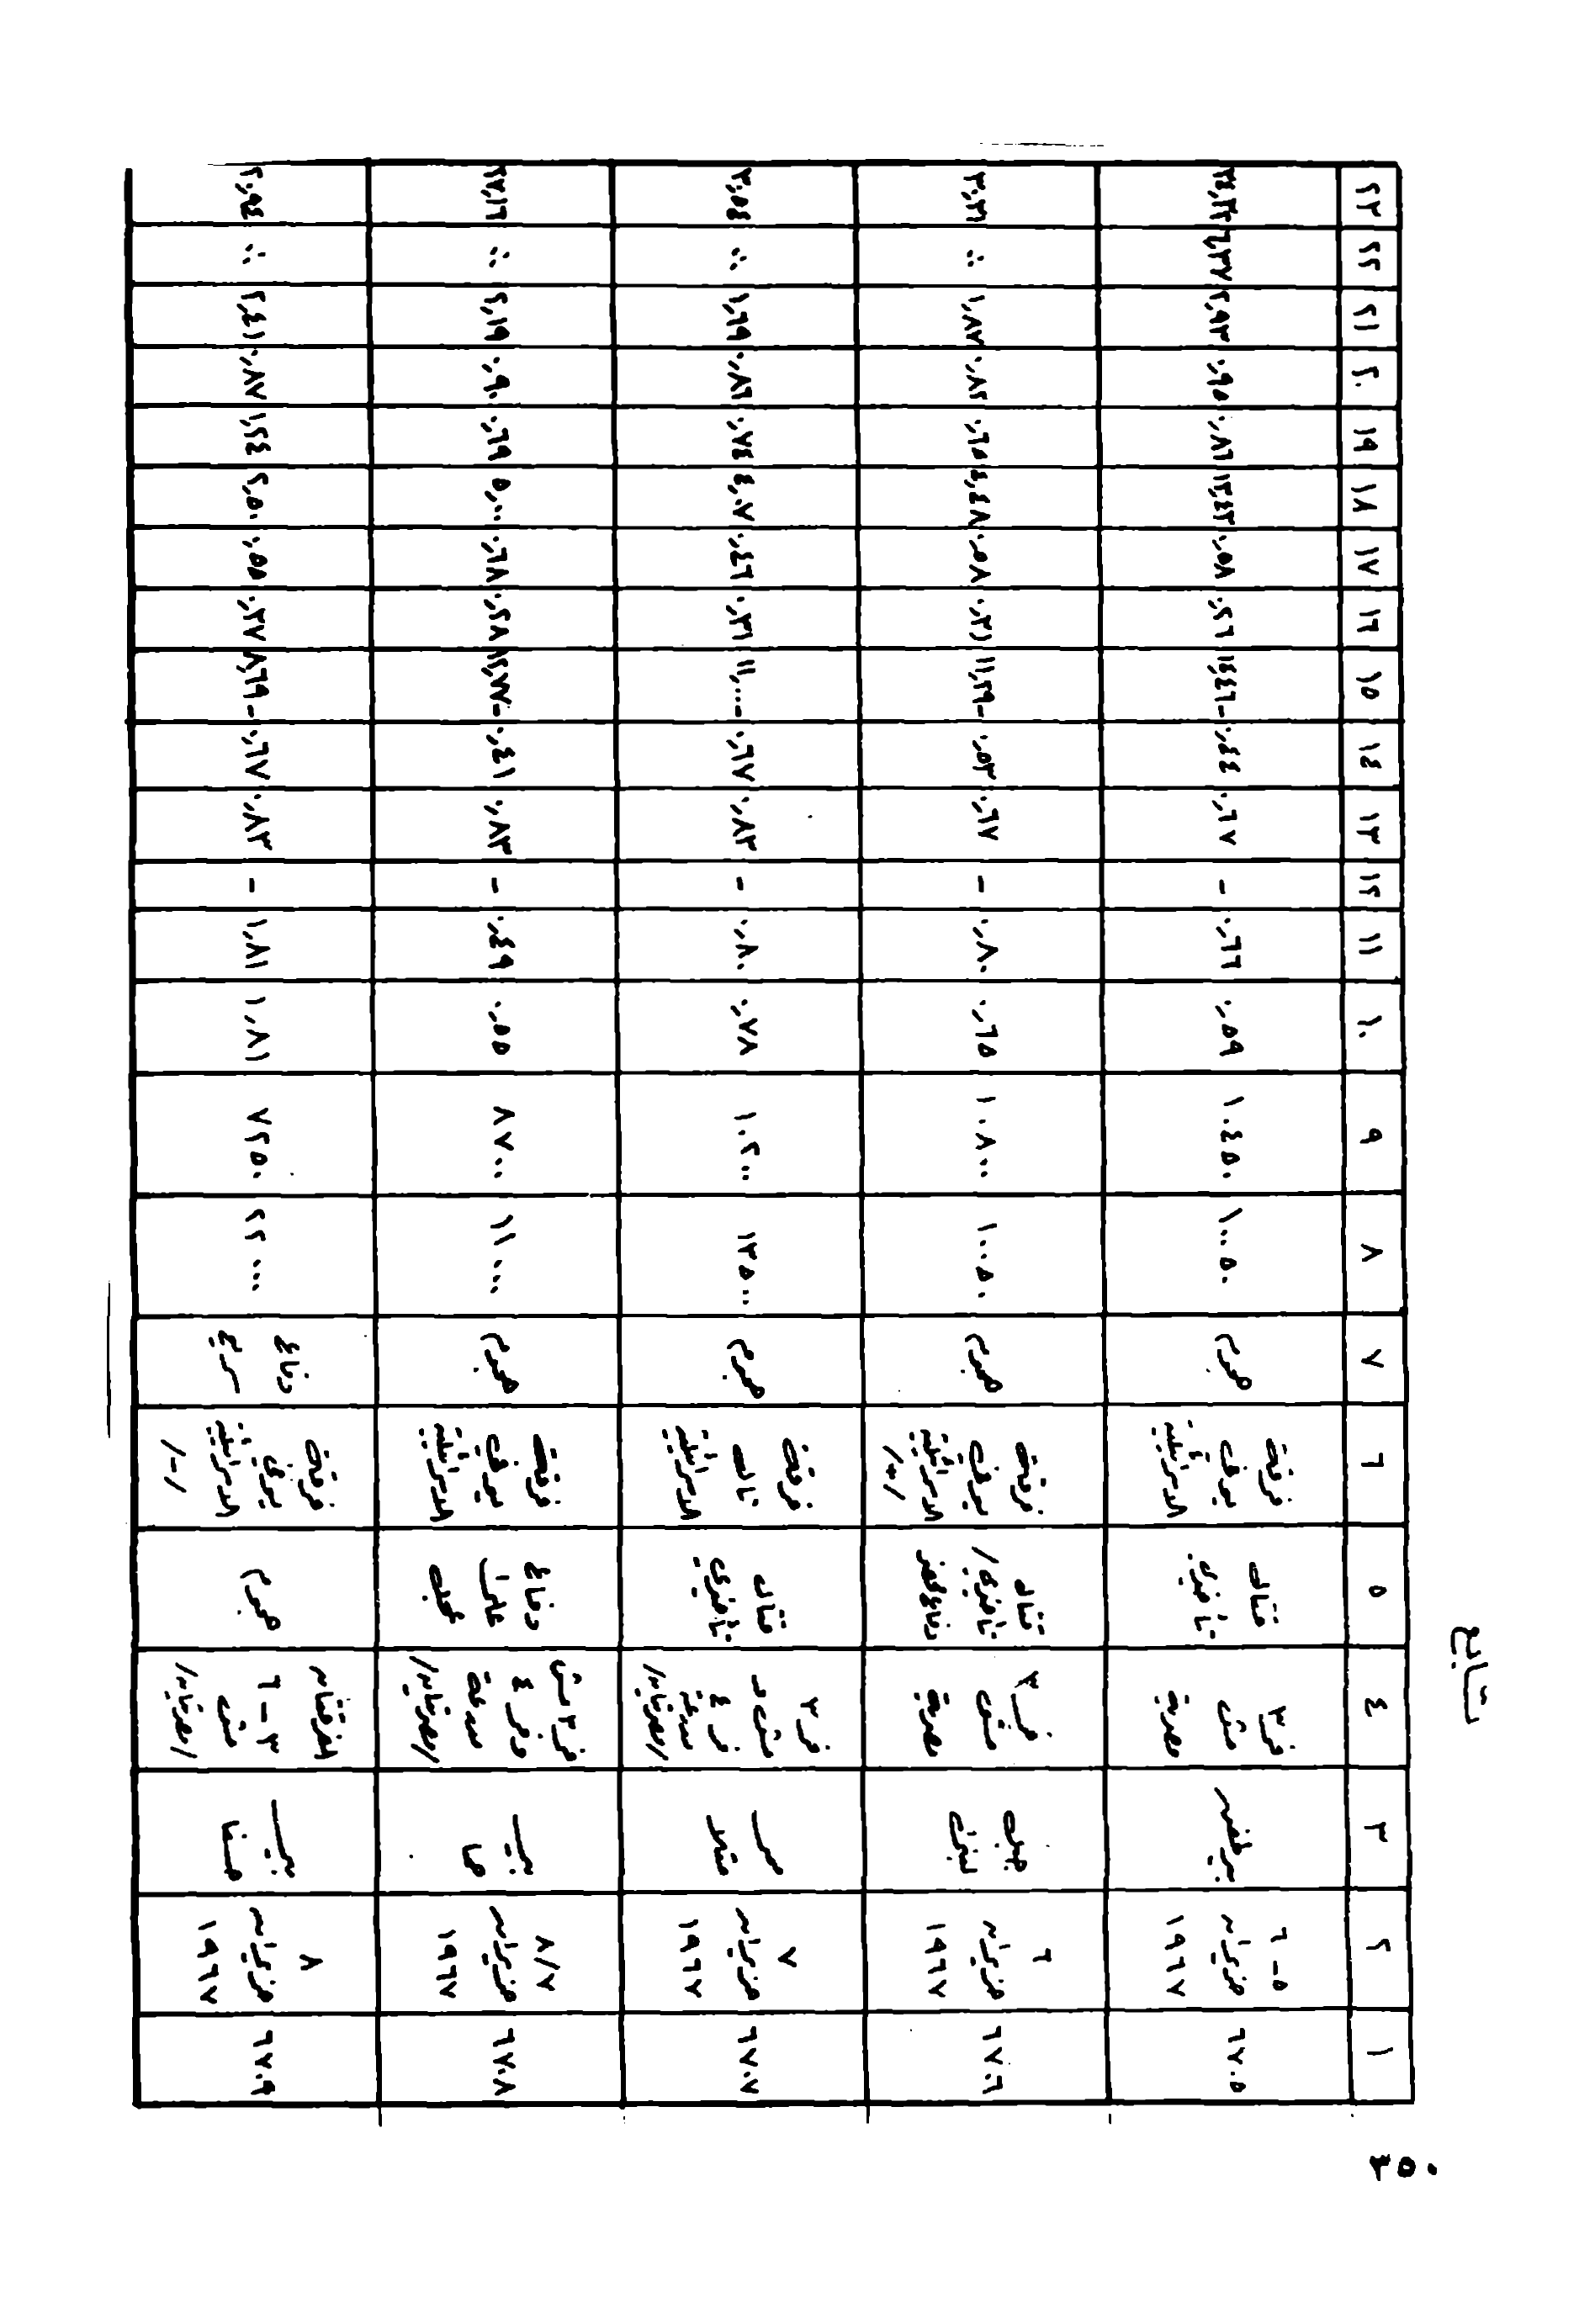 تابع
١ ٢ ٣ ٤ ٥ ٦ ٧ ٨ ٩ ١٠ ١١ ١٢ ١٣ ١٤ ١٥ ١٦ ١٧ ١٨ ١٩ ٢٠ ٢١ ٢٢ ٢٣
٦٧٠٥
٥-٦
حزيران
١٩٦٧
ف٣
مش
مصرية
قتال
تأخيري
فرقة
يوفي
الاسرائيلية
هجوم
١٠٠٥٠ ١٠٤٥٠ ٠,٥٩ ٠,٦٦ - ٠,٦٧ ٠,٤٤ ١٤,٤٦- ٠,٢٦ ٠,٥٨ ١٣,٤٣ ٠,٨٦ ٠,٩٥ ٢,٩٣
٦٧٠٦
٦
حزيران
١٩٦٧
جبل
لبنى
ف٣
مش
مصرية
قتال
تأخيري/
فرقة
يوفي
الاسرائيلية
/+/
هجوم
١٠٠٥٠ ١٠٨٠٠ ٠,٦٥ ٠,٨٠ - ٠,٦٧ ٠,٥٣ ١١,٢٩- ٠,٣١ ٠,٥٨ ٤,٤٨ ٠,٦٥ ٠,٨٢ ١,٨٣ ٠٠٠ ٣,٣١
٦٧٠٧
٧
حزيران
١٩٦٧
ممر
متلا
ف٣
مش
ف ٤
/مصرية/
قتال
تأخيري
فرقة
تال
الاسرائيلية
هجوم
١٣٥٠٠ ١٠٢٠٠ ٠,٧٨ ٠,٨٠ - ٠,٨٣ ٠,٦٧ ١١,٠٠- ٠,٣١ ٠,٤٦ ٤,٠٧ ٠,٧٤ ٠,٨٦ ١,٦٩ ٠٠٠ ٣,٥٤
٦٧٠٨
٨/٧
حزيران
١٩٦٧
بير
حما
ف٣ مش
وف ٤
مدرعة
/مصرية/
دفاع
على
عجل
فرقة
يوفي
الاسرائيلية
هجوم
١١٠٠٠ ٨٧٠٠ ٠,٥٥ ٠,٤٩ - ٠,٨٣ ٠,٤١ ١٢,٧٧- ٠,٢٨ ٠,٦٨ ٥,٠٠ ٠,٦٩ ٠,٩٠ ٢,١٩ ٠٠٠
٦٧٠٩
٨
حزيران
١٩٦٧
بير
الفرقتان
٣-٦
مش
/مصريتان/
هجوم
فرقة
يوفي
الاسرائيلية
/-/
دفاع
سريع
٢٢٠٠٠ ٧٢٥٠ ١,٨١ ١,٨١ - ٠,٨٣ ٠,٦٧ ٨,٦٩- ٠,٣٧ ٠,٥٥ ٢,٥٠ ١,٢٤ ٠,٨٧ ٢,٤١ ٠٠٠ ٢,٩٤
٣٥٠